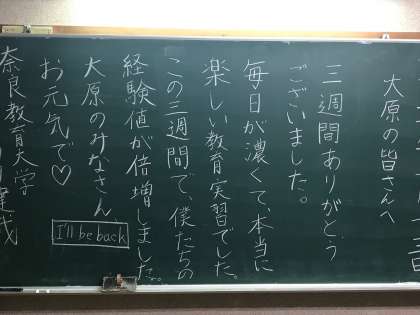 大原の皆さんへ
三週間ありがとう
ございました。
毎日が濃くて、本当に
楽しい教育実習でした。
この三週間で、僕たちの
経験値が倍増しました。
大原のみなさん、
お元気で♡
I'll be back
奈良教育大学